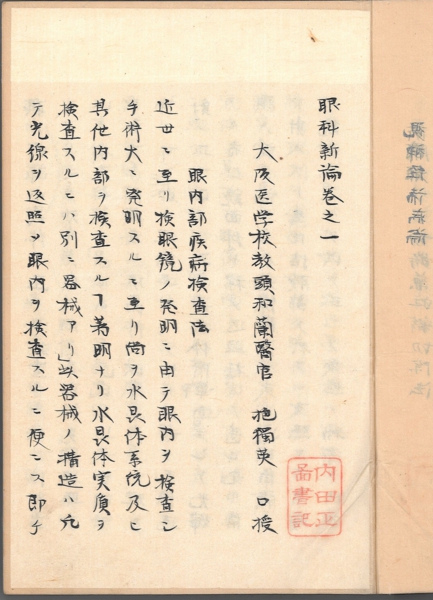 眼科新論巻之一
大阪医学校教頭和蘭醫官 抱獨英 口授
眼内部疾病検査法
近世ニ至リ検眼鏡ノ発明ニ由テ眼内ヲ検査シ
手術大ニ発明スルニ至リ尚ヲ水晶体系統及ヒ
其他内部ヲ検査スルヿ著明ナリ水晶体実質ヲ
検査スルニハ別ニ器械アリ」此器械ノ構造ハ凡
テ光線ヲ返照シ眼内ヲ検査スルニ便ニス即チ
内田正
書記